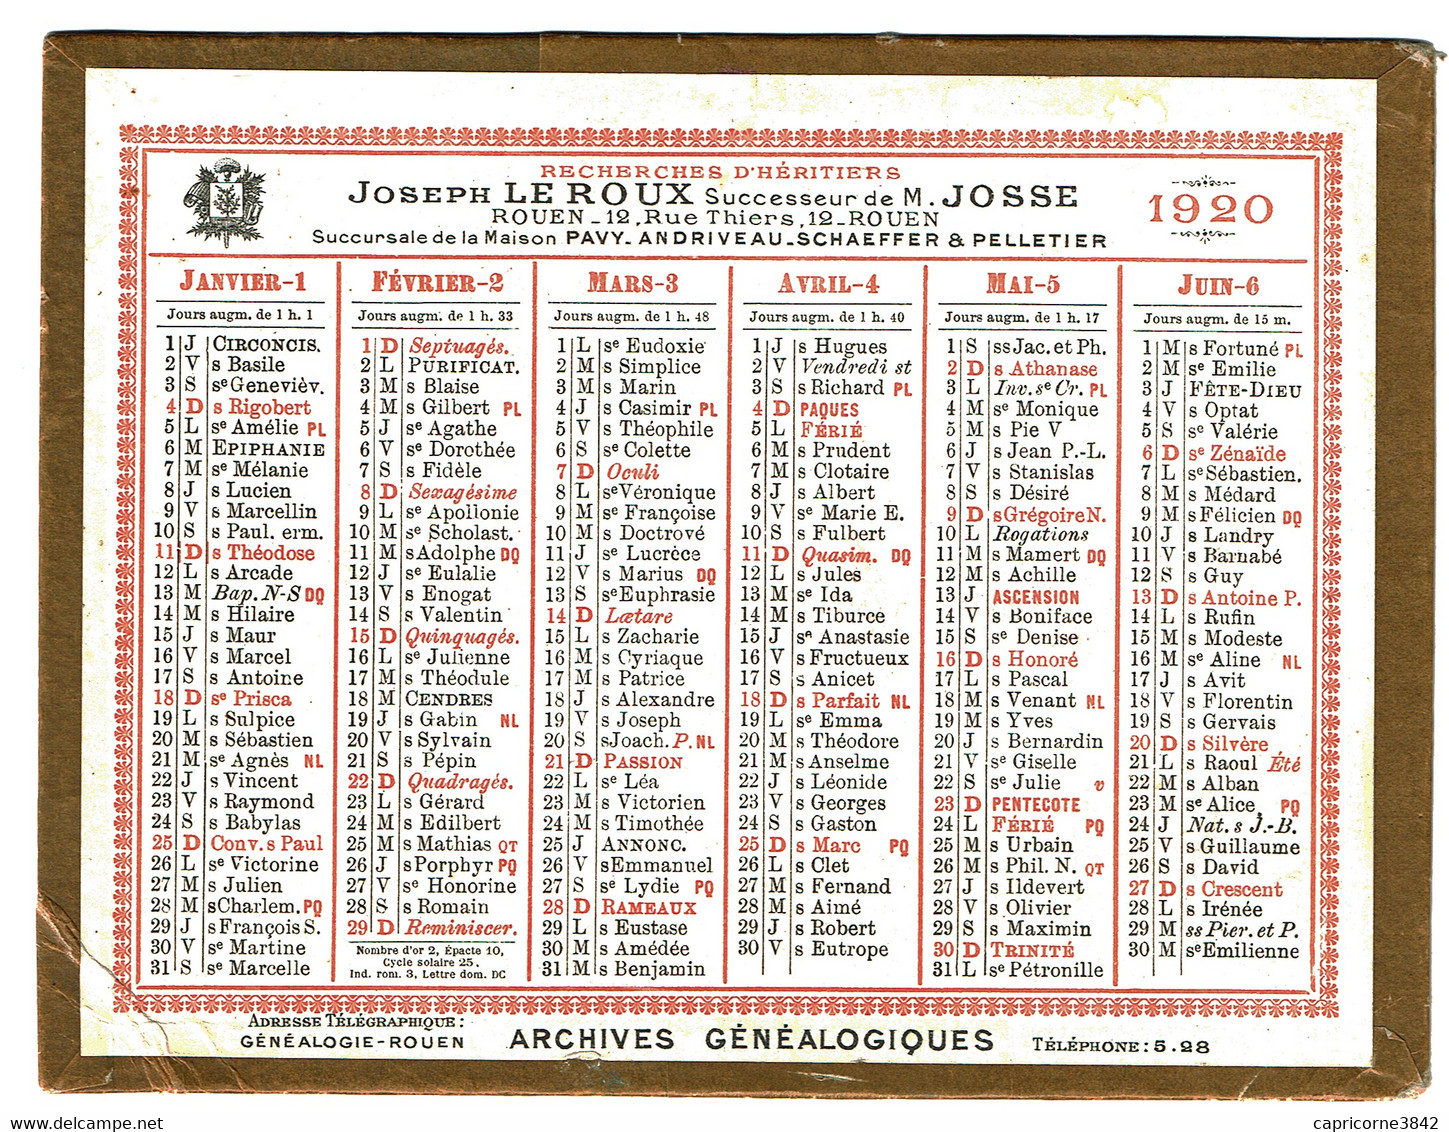 RECHERCHES D'HÉRITIERS
JOSEPH LE ROUX Successeur de M. JOSSE
ROUEN_12, Rue Thiers, 12_ROUEN
Succursale de la Maison PAVY_ANDRIVEAU_SCHAEFFER & PELLETIER
1920
JANVIER-1
Jours augm. de 1 h. 1
1 J CIRCONCIS.
2 V s Basile
3 S sᵉ Genevièv.
4 D s Rigobert
5 L sᵉ Amélie PL
6 M EPIPHANIE
7 M sᵉ Mélanie
8 J s Lucien
9 V s Marcellin
10 S s Paul. erm.
11 D s Théodose
12 L s Arcade
13 M Bap. N-S DQ
14 M s Hilaire
15 J s Maur
16 V s Marcel
17 S s Antoine
18 D sᵉ Prisca
19 L s Sulpice
20 M s Sébastien
21 M sᵉ Agnès NL
22 J s Vincent
23 V s Raymond
24 S s Babylas
25 D Conv. s Paul
26 L sᵉ Victorine
27 M s Julien
28 M s Charlem. PQ
29 J s François S.
30 V sᵉ Martine
31 S sᵉ Marcelle
FÉVRIER-2
Jours augm. de 1 h. 33
1 D Septuagés.
2 L PURIFICAT.
3 M s Blaise
4 M s Gilbert PL
5 J sᵉ Agathe
6 V sᵉ Dorothée
7 S s Fidèle
8 D Sexagésime
9 L sᵉ Apollonie
10 M sᵉ Scholast.
11 M s Adolphe DQ
12 J sᵉ Eulalie
13 V s Enogat
14 S s Valentin
15 D Quinquagés.
16 L sᵉ Julienne
17 M s Théodule
18 M CENDRES
19 J s Gabin NL
20 V s Sylvain
21 S s Pépin
22 D Quadragés.
23 L s Gérard
24 M s Edilbert
25 M s Mathias QT
26 J s Porphyr PQ
27 V sᵉ Honorine
28 S s Romain
29 D Reminiscer.
Nombre d'or 2, Épacte 10,
Cycle solaire 25,
Ind. rom. 3, Lettre dom. DC
MARS-3
Jours augm. de 1 h. 48
1 L sᵉ Eudoxie
2 M s Simplice
3 M s Marin
4 J s Casimir PL
5 V s Théophile
6 S sᵉ Colette
7 D Oculi
8 L sᵉ Véronique
9 M sᵉ Françoise
10 M s Doctrové
11 J sᵉ Lucrèce
12 V s Marius DQ
13 S sᵉ Euphrasie
14 D Lætare
15 L s Zacharie
16 M s Cyriaque
17 M s Patrice
18 J s Alexandre
19 V s Joseph
20 S s Joach. P. NL
21 D PASSION
22 L sᵉ Léa
23 M s Victorien
24 M s Timothée
25 J ANNONC.
26 V s Emmanuel
27 S sᵉ Lydie PQ
28 D RAMEAUX
29 L s Eustase
30 M s Amédée
31 M s Benjamin
AVRIL-4
Jours augm. de 1 h. 40
1 J s Hugues
2 V Vendredi st
3 S s Richard PL
4 D PAQUES
5 L FÉRIÉ
6 M s Prudent
7 M s Clotaire
8 J s Albert
9 V sᵉ Marie E.
10 S s Fulbert
11 D Quasim. DQ
12 L s Jules
13 M sᵉ Ida
14 M s Tiburce
15 J sᵉ Anastasie
16 V s Fructueux
17 S s Anicet
18 D s Parfait NL
19 L sᵉ Emma
20 M s Théodore
21 M s Anselme
22 J s Léonide
23 V s Georges
24 S s Gaston
25 D s Marc PQ
26 L s Clet
27 M s Fernand
28 M s Aimé
29 J s Robert
30 V s Eutrope
MAI-5
Jours augm. de 1 h. 17
1 S ss Jac. et Ph.
2 D s Athanase
3 L Inv. sᵉ Cr. PL
4 M sᵉ Monique
5 M s Pie V
6 J s Jean P.-L.
7 V s Stanislas
8 S s Désiré
9 D s Grégoire N.
10 L Rogations
11 M s Mamert DQ
12 M s Achille
13 J ASCENSION
14 V s Boniface
15 S sᵉ Denise
16 D s Honoré
17 L s Pascal
18 M s Venant NL
19 M s Yves
20 J s Bernardin
21 V sᵉ Giselle
22 S sᵉ Julie v
23 D PENTECOTE
24 L FÉRIÉ PQ
25 M s Urbain
26 M s Phil. N. QT
27 J s Ildevert
28 V s Olivier
29 S s Maximin
30 D TRINITÉ
31 L sᵉ Pétronille
JUIN-6
Jours augm. de 15 m.
1 M s Fortuné PL
2 M sᵉ Emilie
3 J FÊTE-DIEU
4 V s Optat
5 S sᵉ Valérie
6 D sᵉ Zénaïde
7 L sᵉ Sébastien.
8 M s Médard
9 M s Félicien DQ
10 J s Landry
11 V s Barnabé
12 S s Guy
13 D s Antoine P.
14 L s Rufin
15 M s Modeste
16 M sᵉ Aline NL
17 J s Avit
18 V s Florentin
19 S s Gervais
20 D s Silvère
21 L s Raoul Été
22 M s Alban
23 M sᵉ Alice PQ
24 J Nat. s J.-B.
25 V s Guillaume
26 S s David
27 D s Crescent
28 L s Irénée
29 M ss Pier. et P.
30 M sᵉ Emilienne
ADRESSE TÉLÉGRAPHIQUE:
GÉNÉALOGIE-ROUEN
ARCHIVES GÉNÉALOGIQUES
TÉLÉPHONE: 5.28
capricorne3842